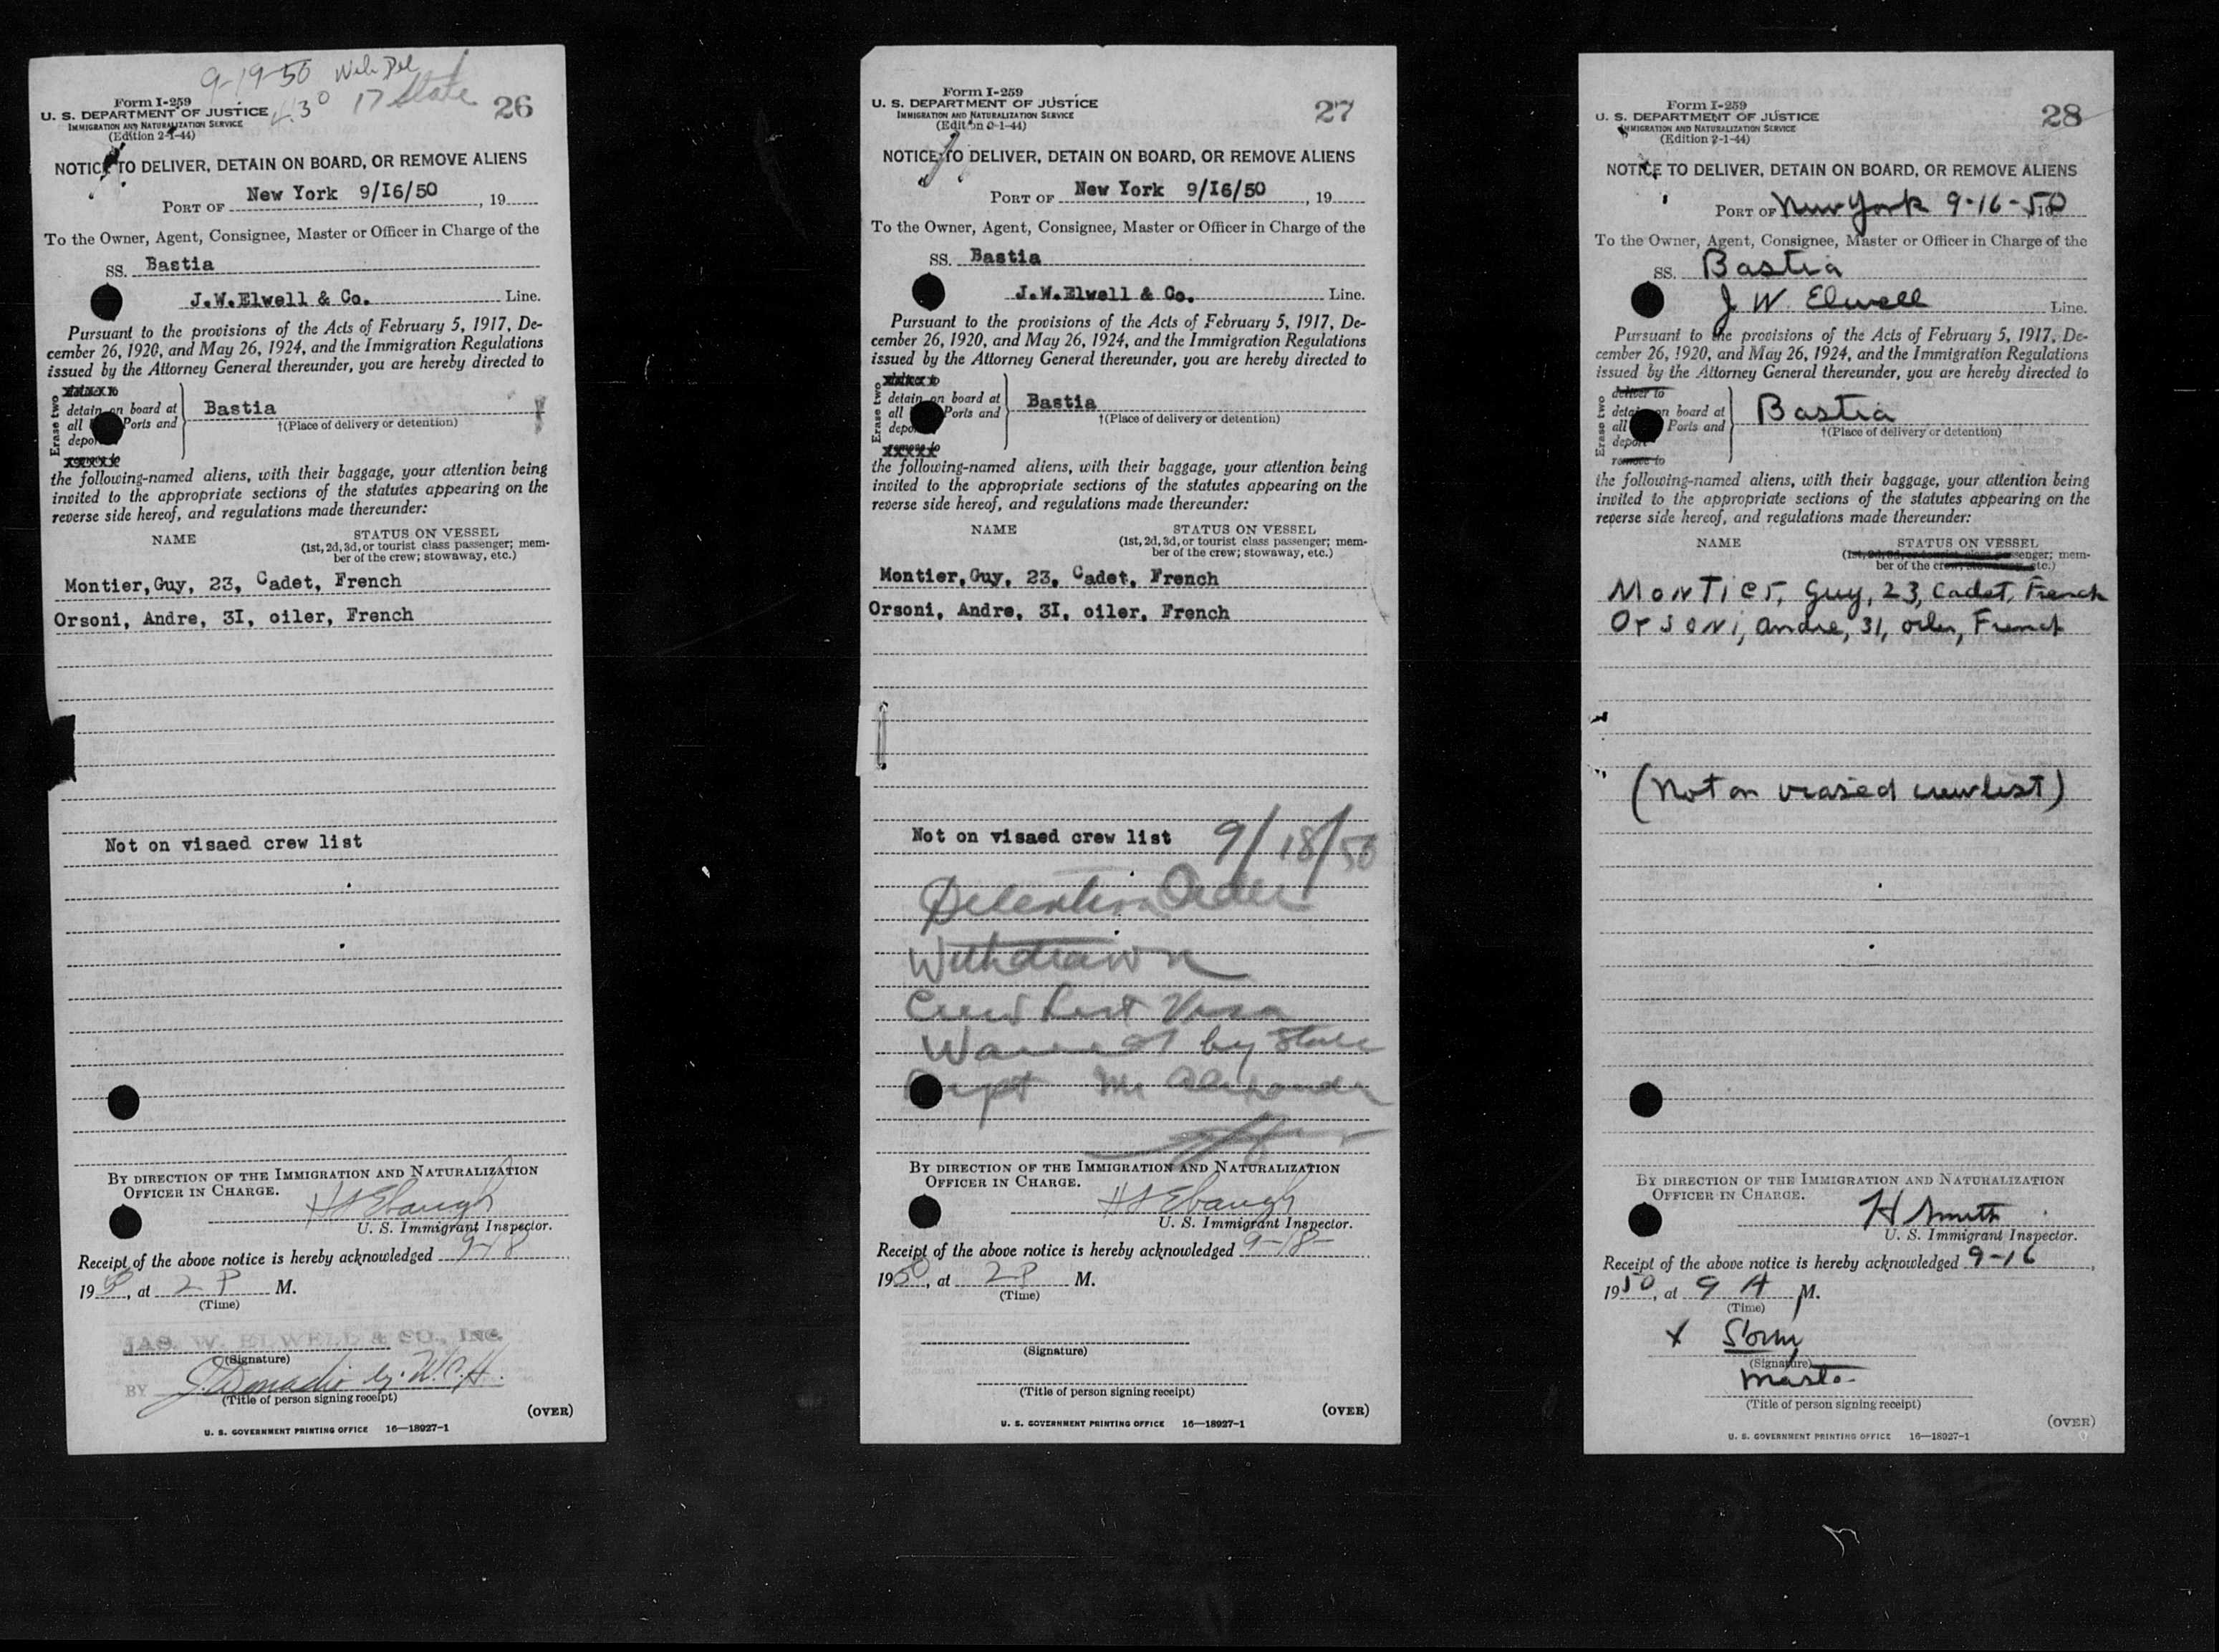 9-19-50
430 17 State
Form I-259
U. S. DEPARTMENT OF JUSTICE
IMMIGRATION AND NATURALIZATION SERVICE
(Edition 2-1-44)
26
NOTICE TO DELIVER, DETAIN ON BOARD, OR REMOVE ALIENS
PORT OF New York 9/I6/50, 19
To the Owner, Agent, Consignee, Master or Officer in Charge of the
SS. Bastia
J.W.Elwell & Co. Line.
Pursuant to the provisions of the Acts of February 5, 1917, De-
cember 26, 1920, and May 26, 1924, and the Immigration Regulations
issued by the Attorney General thereunder, you are hereby directed to
Erase two
detain on board at
all Ports and
Bastia
†(Place of delivery or detention)
the following-named aliens, with their baggage, your attention being
invited to the appropriate sections of the statutes appearing on the
reverse side hereof, and regulations made thereunder:
NAME
STATUS ON VESSEL
(1st, 2d, 3d, or tourist class passenger; mem-
ber of the crew; stowaway, etc.)
Montier,Guy, 23, Cadet, French
Orsoni, Andre, 3I, oiler, French
Not on visaed crew list
BY DIRECTION OF THE IMMIGRATION AND NATURALIZATION
OFFICER IN CHARGE.
H S Ebaugh
U. S. Immigrant Inspector.
Receipt of the above notice is hereby acknowledged 9-18
1950, at 2 P M.
(Time)
JAS. W. ELWELL & CO., INC.
(Signature)
BY J. Donadio by W.O.H.
(Title of person signing receipt)
(OVER)
U. S. GOVERNMENT PRINTING OFFICE 16—18927-1
Form I-259
U. S. DEPARTMENT OF JUSTICE
IMMIGRATION AND NATURALIZATION SERVICE
(Edition 2-1-44)
27
NOTICE TO DELIVER, DETAIN ON BOARD, OR REMOVE ALIENS
PORT OF New York 9/I6/50, 19
To the Owner, Agent, Consignee, Master or Officer in Charge of the
SS. Bastia
J.W.Elwell & Co. Line.
Pursuant to the provisions of the Acts of February 5, 1917, De-
cember 26, 1920, and May 26, 1924, and the Immigration Regulations
issued by the Attorney General thereunder, you are hereby directed to
Erase two
detain on board at
all Ports and
remove to
Bastia
†(Place of delivery or detention)
the following-named aliens, with their baggage, your attention being
invited to the appropriate sections of the statutes appearing on the
reverse side hereof, and regulations made thereunder:
NAME
STATUS ON VESSEL
(1st, 2d, 3d, or tourist class passenger; mem-
ber of the crew; stowaway, etc.)
Montier,Guy, 23, Cadet, French
Orsoni, Andre, 3I, oiler, French
Not on visaed crew list 9/18/50
Detention Order
Withdrawn
Crew List Visa
Waived by State
Dept Mr Alexander
BY DIRECTION OF THE IMMIGRATION AND NATURALIZATION
OFFICER IN CHARGE.
H S Ebaugh
U. S. Immigrant Inspector.
Receipt of the above notice is hereby acknowledged 9-18-
1950, at 2 P M.
(Time)
(Signature)
(Title of person signing receipt)
(OVER)
U. S. GOVERNMENT PRINTING OFFICE 16—18927-1
Form I-259
U. S. DEPARTMENT OF JUSTICE
IMMIGRATION AND NATURALIZATION SERVICE
(Edition 2-1-44)
28
NOTICE TO DELIVER, DETAIN ON BOARD, OR REMOVE ALIENS
PORT OF New York 9-16-50
To the Owner, Agent, Consignee, Master or Officer in Charge of the
SS. Bastia
J W. Elwell Line.
Pursuant to the provisions of the Acts of February 5, 1917, De-
cember 26, 1920, and May 26, 1924, and the Immigration Regulations
issued by the Attorney General thereunder, you are hereby directed to
Erase two
deliver to
detain on board at
all Ports and
deport
remove to
Bastia
†(Place of delivery or detention)
the following-named aliens, with their baggage, your attention being
invited to the appropriate sections of the statutes appearing on the
reverse side hereof, and regulations made thereunder:
NAME
STATUS ON VESSEL
(1st, 2d, 3d, or tourist class passenger; mem-
ber of the crew, stowaway, etc.)
MONTIER, Guy, 23, Cadet, French
ORSONI, Andre, 31, oiler, French
(Not on visaed crew list)
BY DIRECTION OF THE IMMIGRATION AND NATURALIZATION
OFFICER IN CHARGE.
H Smith
U. S. Immigrant Inspector.
Receipt of the above notice is hereby acknowledged 9-16,
1950, at 9 A M.
(Time)
X
(Signature)
Master
(Title of person signing receipt)
(OVER)
U. S. GOVERNMENT PRINTING OFFICE 16—18927-1